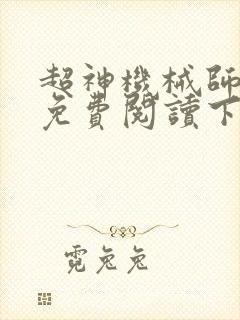 超神機械師
免費閱讀下
霓兔兔